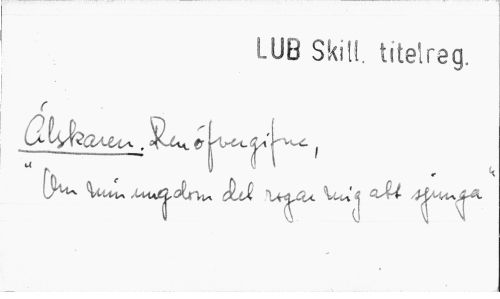 LUB Skill. titelreg.
Älskaren. Den öfvergifne,
"Om min ungdom det rogar mig att sjunga"